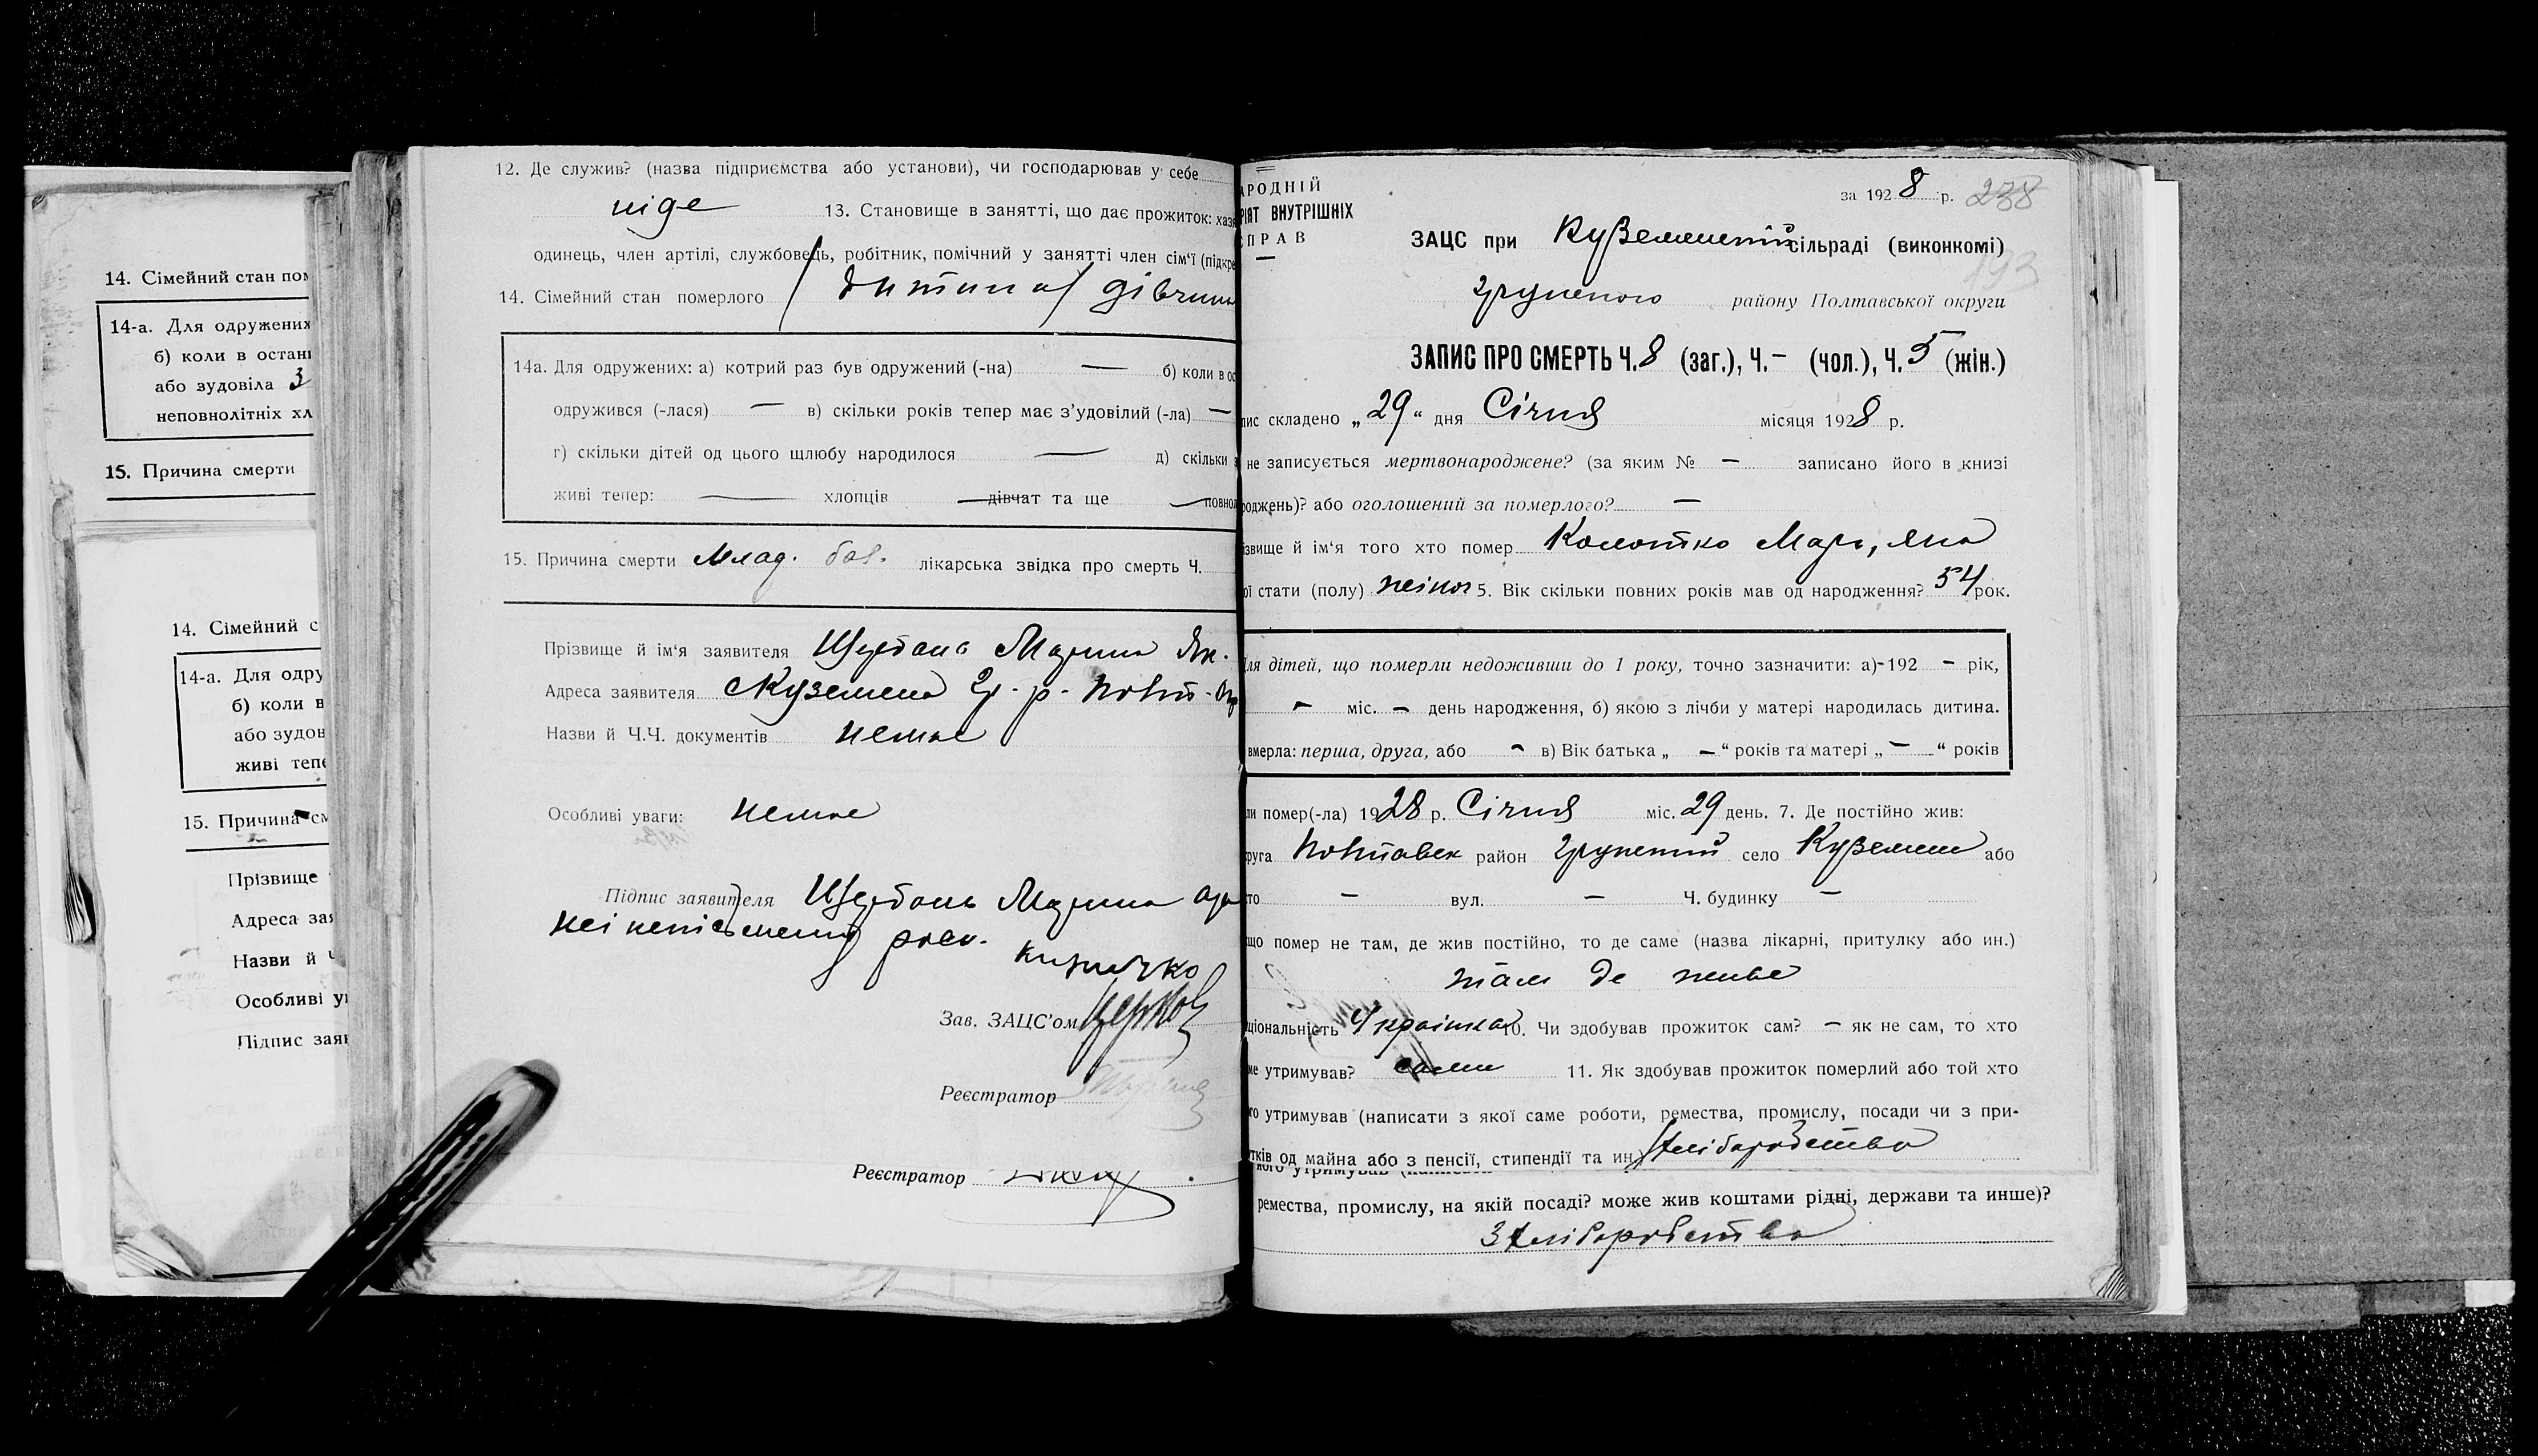 14. Сімейний стан пом
14-а. Для одружених
б) коли в остан
або зудовіла З
неповнолітніх хл
15. Причина смерти
14. Сімейний с
14-а. Для одру
б) коли в
або зудов
живі тепе
15. Причина см
Прізвище
Адреса зая
Назви й ч
Особливі у
Підпис заяв
12. Де служив? (назва підприємства або установи), чи господарював у себе
ніде 13. Становище в занятті, що дає прожиток: хазя
одинець, член артілі, службовець, робітник, помічний у занятті член сім'ї (підкре
14. Сімейний стан померлого / дитина / дівчина
14а. Для одружених: а) котрий раз був одружений (-на) — б) коли в ос
одружився (-лася) — в) скільки років тепер має з'удовілий (-ла) —
г) скільки дітей од цього щлюбу народилося — д) скільки з
живі тепер: — хлопців — дівчат та ще — повнол
15. Причина смерти Млад. бол. лікарська звідка про смерть Ч.
Прізвище й ім'я заявителя Щербань Марина Як.
Адреса заявителя с Куземена Гр. р. Полт. Окр
Назви й Ч.Ч. документів немає
Особливі уваги: немає
Підпис заявителя Щербань Марина а за
неі неписьменну розп.
Зав. ЗАЦС'ом
Реєстратор
Реєстратор
АРОДНІЙ
РІЯТ ВНУТРІШНІХ
ПРАВ
за 1928 р. 238
193
ЗАЦС при Куземенській сільраді (виконкомі)
Грунського району Полтавської округи
ЗАПИС ПРО СМЕРТЬ Ч. 8 (заг.), Ч. – (чол.), Ч. 5 (жін.)
пис складено „29“ дня Січня місяця 1928 р.
не записується мертвонароджене? (за яким № – записано його в книзі
роджень)? або оголошений за померлого? —
ізвище й ім'я того хто помер Колотко Мар'яна
ої стати (полу) жіноч 5. Вік скільки повних років мав од народження? 54 рок.
Для дітей, що померли недоживши до 1 року, точно зазначити: а) 192 – рік,
– міс. – день народження, б) якою з лічби у матері народилась дитина.
вмерла: перша, друга, або – в) Вік батька „ – “ років та матері „ – “ років
ли помер(-ла) 1928 р. Січня міс. 29 день. 7. Де постійно жив:
руга Полтавск район Грунський село Куземин або
сто – вул. – Ч. будинку –
що помер не там, де жив постійно, то де саме (назва лікарні, притулку або ин.)
там де живе
ціональність Українка 10. Чи здобував прожиток сам? – як не сам, то хто
ме утримував? сами 11. Як здобував прожиток померлий або той хто
го утримував (написати з якої саме роботи, ремества, промислу, посади чи з при-
тків од майна або з пенсії, стипендії та ин.) Хліборобство
ремества, промислу, на якій посаді? може жив коштами рідні, держави та инше)?
З хліборобства